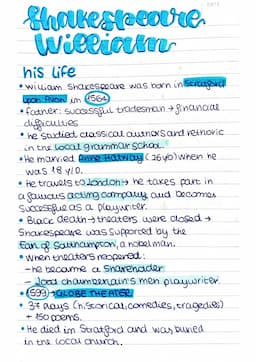 Shakespeare
William
his life
• William Shakespeare was born in Stratford
upon Avon in 1564
• Father: successful tradesman → financial
difficulties
• he studied classical authors and rethoric
in the local grammar school
• He married Anne Hathway (26 yo) when he
was 18 y.o.
• He travels to London → he takes part in
a famous acting company and becomes
successful as a playwriter.
• Black death → theaters were closed →
Shakespeare was supported by the
Earl of Southampton, a nobel man.
• When theaters reopened:
- he became a Shareholder
- Lord chamberlain's men playwriter.
• 1599 → GLOBE THEATER
• 37 plays (historical, comedies, tragedies)
+ 150 poems.
• He died in Stratford and was buried
in the local church.